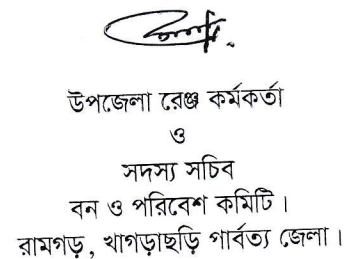 উপজেলা রেঞ্জ কর্মকর্তা
ও
সদস্য সচিব
বন ও পরিবেশ কমিটি।
রামগড়, খাগড়াছড়ি পার্বত্য জেলা।